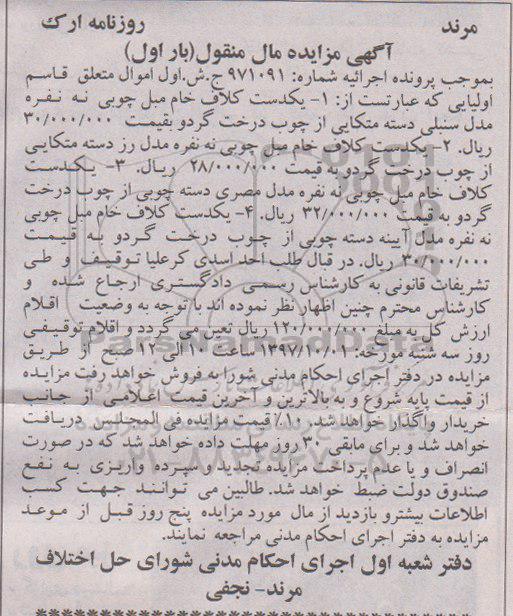 مرند روزنامه ارک
آگهی مزایده مال منقول(بار اول)
بموجب پرونده اجرائیه شماره: ۹۷۱۰۹۱ ج.ش.اول اموال متعلق قاسم
اولیایی که عبارتست از: ۱- یکدست کلاف خام مبل چوبی نه نفره
مدل سنبلی دسته متکایی از چوب درخت گردو بقیمت ۳۰/۰۰۰/۰۰۰
ریال. ۲- یکدست کلاف خام مبل چوبی نه نفره مدل رز دسته متکایی
از چوب درخت گردو به قیمت ۲۸/۰۰۰/۰۰۰ ریال. ۳- یکدست
کلاف خام مبل چوبی نه نفره مدل مصری دسته چوبی از چوب درخت
گردو به قیمت ۳۲/۰۰۰/۰۰۰ ریال. ۴- یکدست کلاف خام مبل چوبی
نه نفره مدل آیینه دسته چوبی از چوب درخت گردو به قیمت
۳۰/۰۰۰/۰۰۰ ریال. در قبال طلب احد اسدی کرعلیا توقیف و طی
تشریفات قانونی به کارشناس رسمی دادگستری ارجاع شده و
کارشناس محترم چنین اظهار نظر نموده اند با توجه به وضعیت اقلام
ارزش کل به مبلغ ۱۲۰/۰۰۰/۰۰۰ ریال تعیین می گردد و اقلام توقیفی
روز سه شنبه مورخه: ۱۳۹۷/۱۰/۰۱ ساعت ۱۰ الی ۱۲ صبح از طریق
مزایده در دفتر اجرای احکام مدنی شورا به فروش خواهد رفت مزایده
از قیمت پایه شروع و به بالاترین و آخرین قیمت اعلامی از جانب
خریدار واگذار خواهد شد. ۱۰٪ قیمت مزایده فی المجلس دریافت
خواهد شد و برای مابقی ۳۰ روز مهلت داده خواهد شد که در صورت
انصراف و یا عدم پرداخت مزایده تجدید و سپرده واریزی به نفع
صندوق دولت ضبط خواهد شد. طالبین می توانند جهت کسب
اطلاعات بیشترو بازدید از مال مورد مزایده پنج روز قبل از موعد
مزایده به دفتر اجرای احکام مدنی مراجعه نمایند.
دفتر شعبه اول اجرای احکام مدنی شورای حل اختلاف
مرند- نجفی